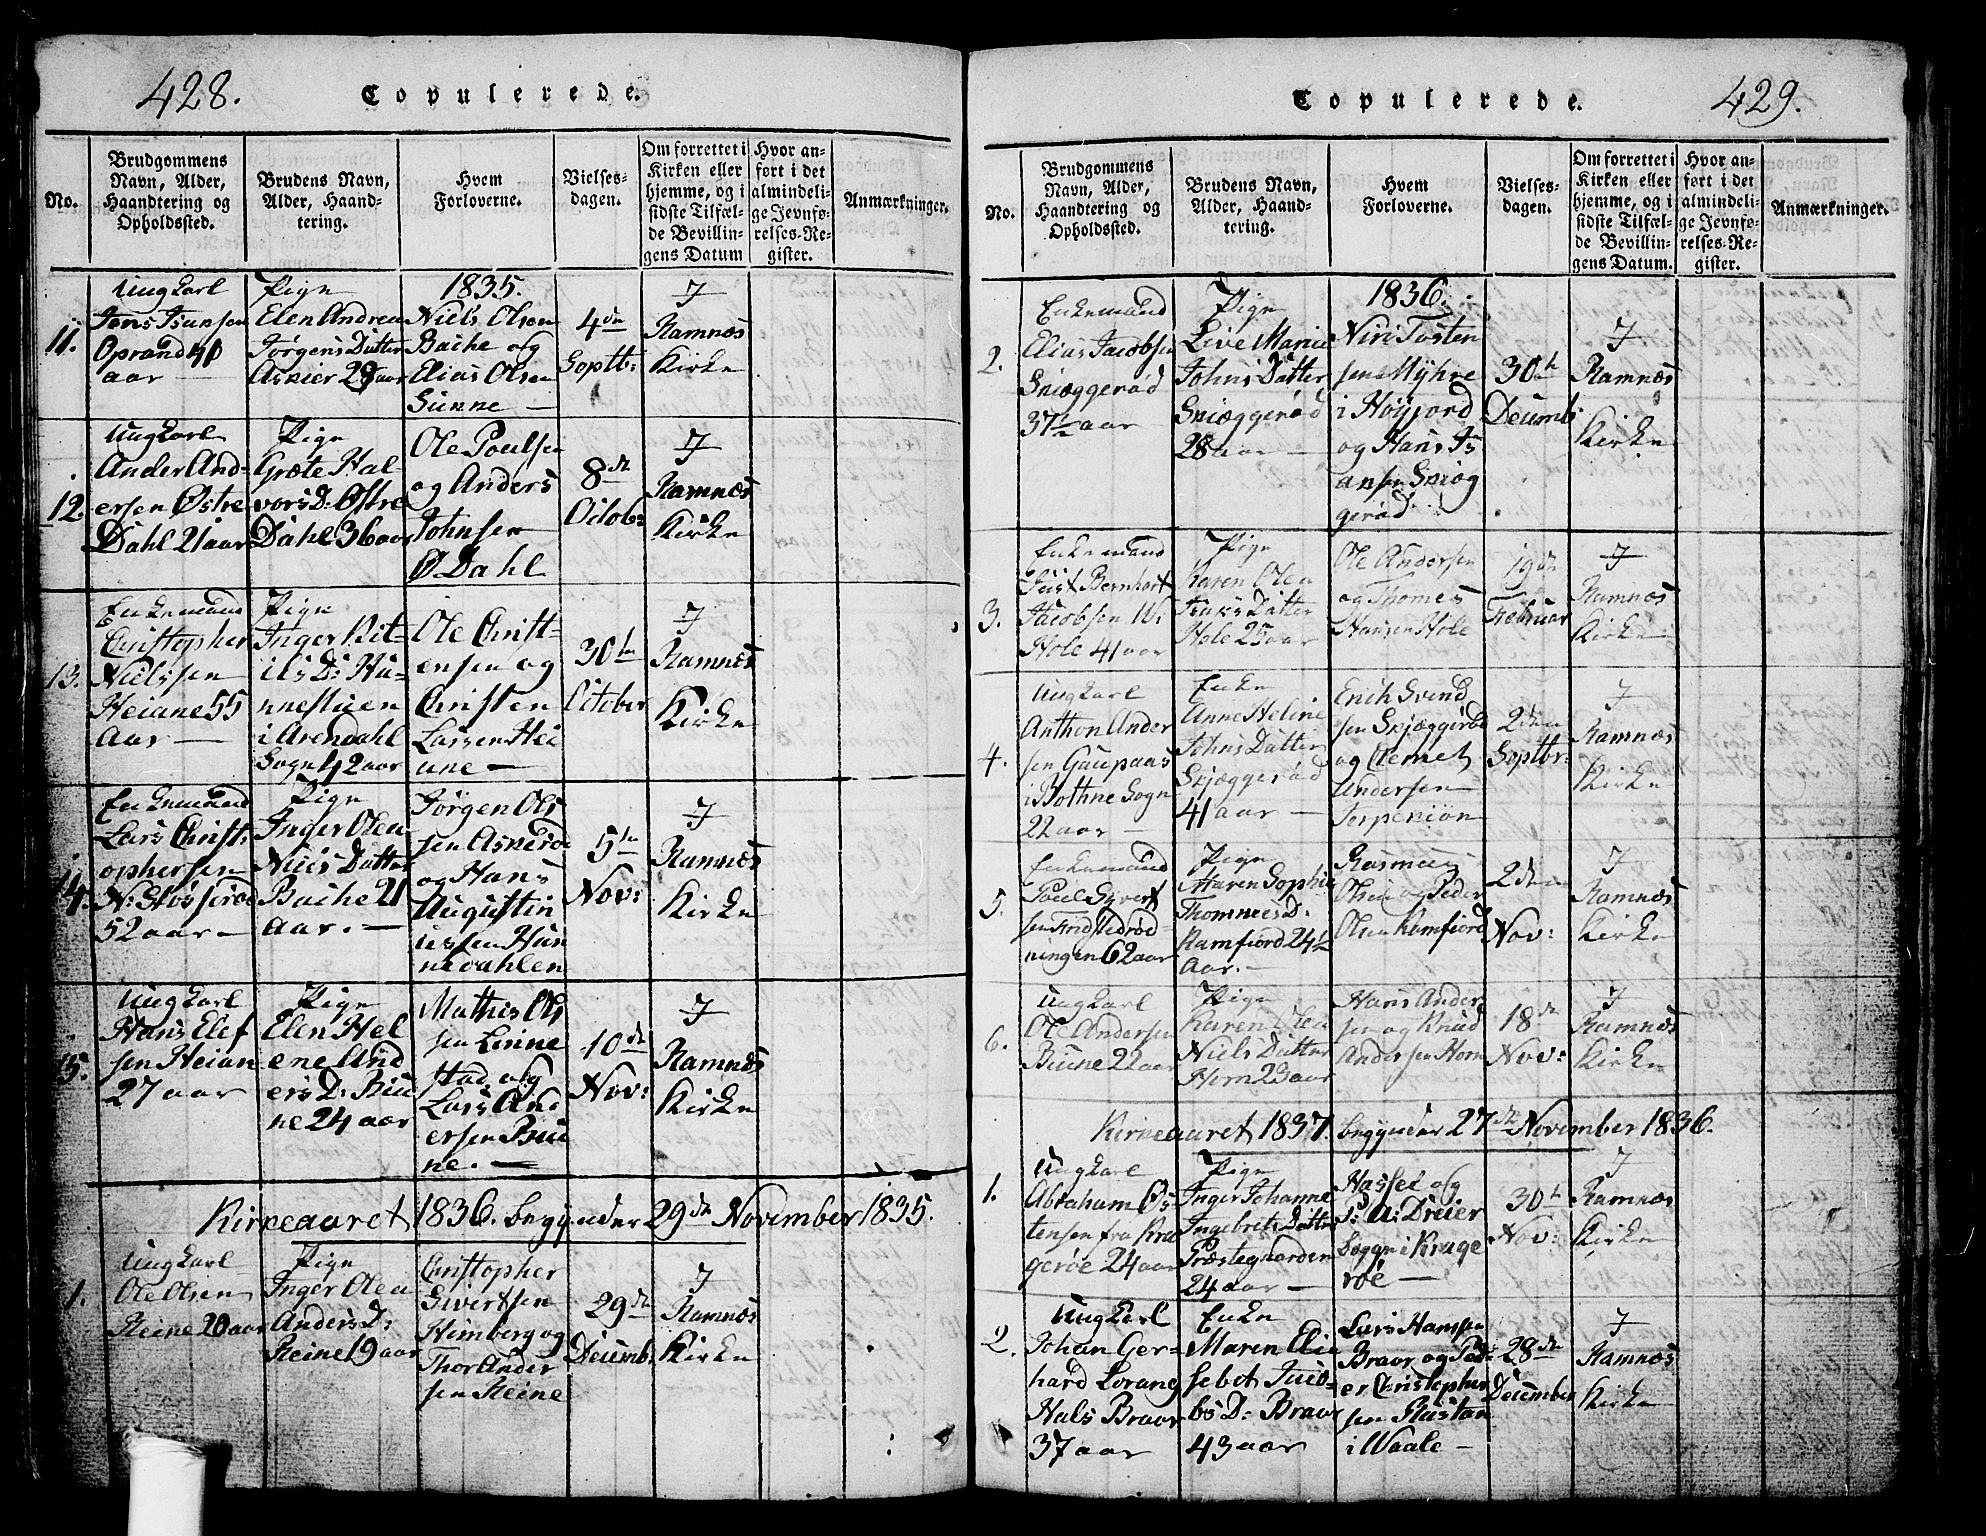 428.
Copulerede.
No.
Brudgommens
Navn, Alder,
Haandtering og
Opholdssted.
Brudens Navn,
Alder, Haand-
tering.
Hvem
Forloverne.
Vielses-
dagen.
Om forrettet i
Kirken eller
hjemme, og i
sidste Tilfæl-
de Bevillin-
gens Datum
Hvor an-
ført i det
almindeli-
ge Jevnfø-
relses-Re-
gister.
Anmærkninger.
11.
Ungkarl
Jens
Oprand
aar
Pige
Elen Andrea
Jørgens Datter
Askier 29 aar
1835.
Niels Olsen
Bache og
Elias Olsen
Sunne
4de
Septb:
I
Ramnæs
Kirke
12.
Ungkarl
Ander And-
ersen Østre
Dahl 21 aar
Pige
Græte Hal-
vors D: Østre
Dahl 36 aar
Ole Poulsen
og Anders
Johnsen
Ø Dahl
8de
Octob:
I
Ramnæs
Kirke
13.
Enkemand
Christopher
Nielssen
Heiane 55
Aar
Pige
Inger Kit-
ils D: Hu-
nnestuen
i Arendahl
Sogn 42 aar
Ole Christ-
ensen og
Christen
Larsen Hei
ane
30te
October
I
Ramnæs
Kirke
14.
Enkemand
Lars Christ-
ophersen
N:
52 aar
Pige
Inger Olea
Niels Datter
Bache 21
aar.
Jørgen Ols
sen Askerød
og Hans
Augustin
iussen Hun
nedahlen
5te
Nov:
I
Ramnæs
Kirke
15.
Ungkarl
Hans Elef
sen Heian
27 aar
Pige
Elen Hel
ene And
ers D: Buu
ne 24 aar
Mathis Ols
sen Linne
stad og
Lars And
ersen Buu
ne.
10de
Nov:
I
Ramnæs
Kirke
Kirkeaaret 1836. begynder 29de November 1835.
1.
Ungkarl
Ole Olsen
Reine 20 aar
Pige
Inger Olea
Anders D:
Reine 19 aar
Christopher
Sivertsen
Himberg og
Thor Ander
sen Reine
29de
Decemb:
I
Ramnæs
Kirke
Copulerede.
429.
No.
Brudgommens
Navn, Alder,
Haandtering og
Opholdssted.
Brudens Navn,
Alder, Haand-
tering.
Hvem
Forloverne.
Vielses-
dagen.
Om forrettet i
Kirken eller
hjemme, og i
sidste Tilfæl-
de Bevillin-
gens Datum.
Hvor an-
ført i det
almindeli-
ge Jevnfø-
relses-Re-
gister.
Anmærkninger.
2.
Enkemand
Elias Jacobsen
Sniæggerød
37½ aar
Pige
Live Marie
Johns Datter
Sniæggerød
28 aar
1836.
Niri Tosten
sen Myhre
i Høyjord
og Hans Is
aksen Sniæg
gerød
30te
Decemb
I
Ramnæs
Kirke
3.
Enkemand
Just Bernhart
Jacobsen W:
Hole 41 aar
Pige
Karen Olea
Isaks Datter
Hole 25 aar
Ole Andersen
og Thomes
Hansen Hole
19de
Februar
I
Ramnæs
Kirke
4.
Ungkarl
Anthon Ander
sen Gaupaas
i Bothne Sogn
22 aar
Enke
Anne Heline
Johns Datter
Skjæggerød
41 aar
Erich Svend
sen Skjæggerød
og Clemet
Andersen
Torpeniøn
2den
Septbr:
I
Ramnæs
Kirke
5.
Enkemand
Poul Syvert
sen
ningen 62 aar
Pige
Maren Sophie
Thommes D:
Ramfiord 24½
Aar.
Rasmus
Olsen og Peder
Olsen Ramfiord
2den
Nov:
I
Ramnæs
Kirke
6.
Ungkarl
Ole Andersen
Buune 22 aar
Pige
Karen Olea
Niels Datter
Horn 23 aar
Hans Ander
sen og Knud
Andersen Horn
18de
Nov:
I
Ramnæs
Kirke
Kirkeaaret 1837. begynder 27de November 1836.
1.
Ungkarl
Abraham Øs
tensen fra Kra
gerøe 24 aar
Pige
Inger Johanne
Ingebrets Datter
Præstegaarden
24 aar
Hassel og
J: A: Dreier
begge i Krage
røe
30te
Nov:
I
Ramnæs
Kirke
2.
Ungkarl
Johan Ger-
hard Lorang
Hals Bravr
37 aar
Enke
Maren Eli
sebet Jaco-
bs D: Bravr
43 aar
Lars Hansen
Bravr og Ped-
er Christopher
sen Rastan
i Waale
28de
December
I
Ramnæs
Kirke